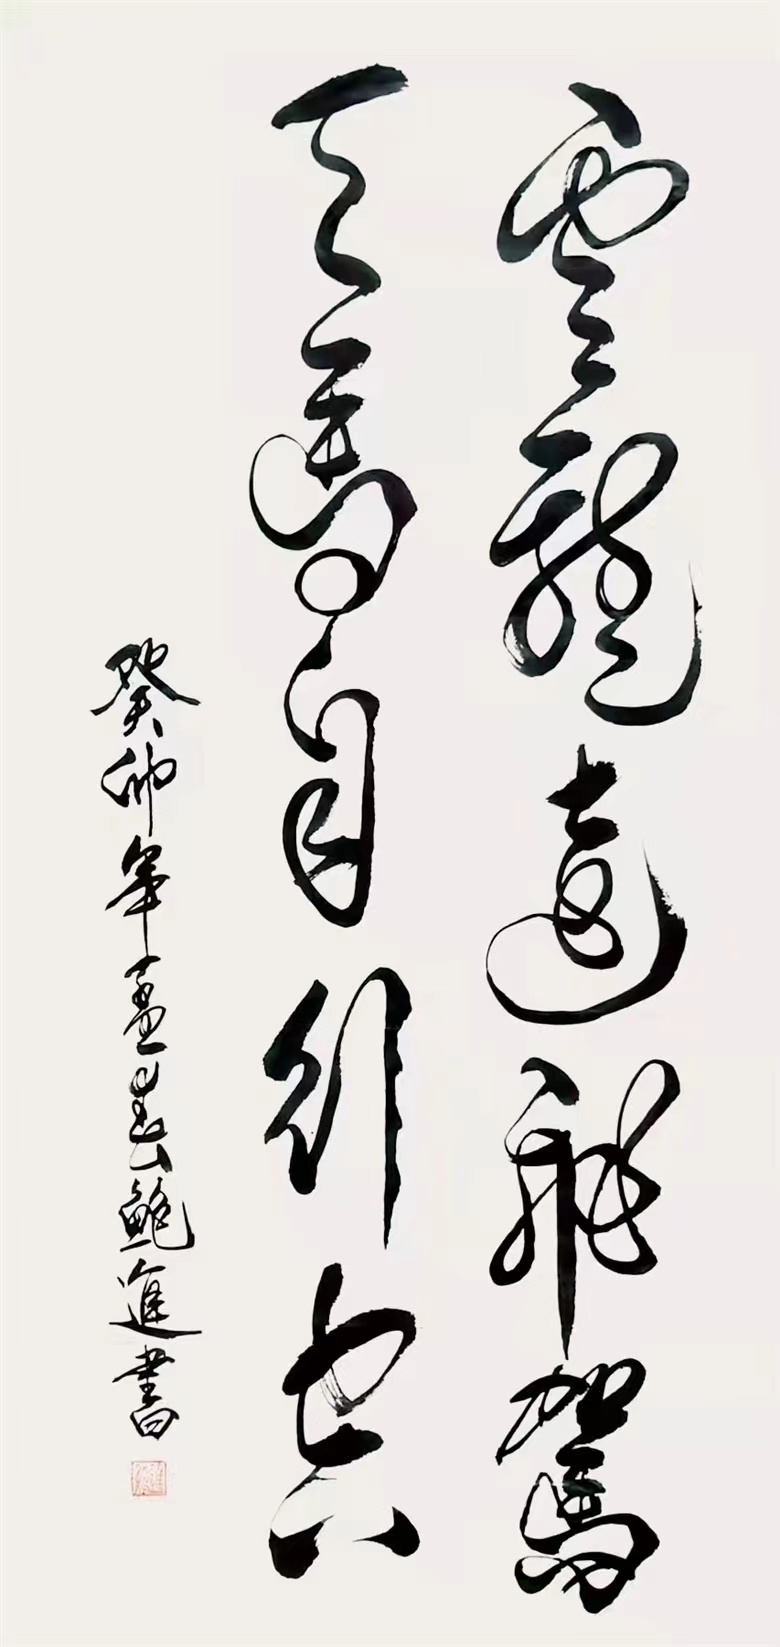 雲龍遠飛駕
天馬自行空
癸卯年孟春鮑進書